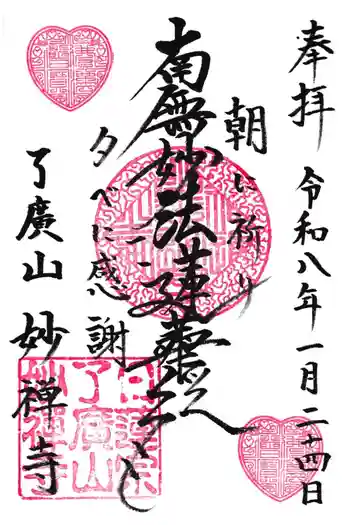 奉拝
令和八年一月二十四日
朝に祈り
南無妙法蓮華経
夕べに感謝
了廣山
妙禅寺
日蓮宗
了廣山
妙禅寺